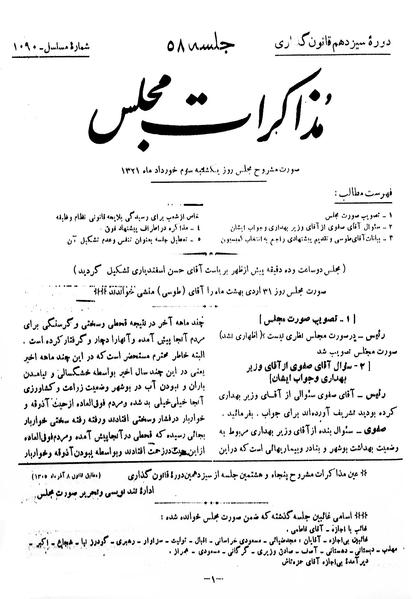 دورهٔ سیزدهم قانون گذاری
جلسه ۵۸
شمارهٔ مسلسل - ۱۰۹۰
مذاکرات مجلس
صورت مشروح مجلس روز یکشنبه سوم خورداد ماه ۱۳۲۱
فهرست مطالب:
۱ - تصویب صورت مجلس
۲ - سئوال آقای صفوی از آقای وزیر بهداری و جواب ایشان
۳ - بیانات آقای طوسی و تقدیم پیشنهادی راجع به انتخاب کمیسیون
خاص از شعب برای رسیدگی بلایحه قانونی نظام وظیفه
۴ - مذاکره در اطراف پیشنهاد فوق
۵ - تعطیل جلسه بعنوان تنفس وعدم تشکیل آن
(مجلس دوساعت وده دقیقه پیش ازظهر بریاست آقای حسن اسفندیاری تشکیل گردید)
صورت مجلس روز ۳۱ اردی بهشت ماه را آقای (طوسی) منشی خواندند
[۱ - تصویب صورت مجلس]
رئیس - درصورت مجلس نظری نیست؟ (اظهاری نشد)
صورت مجلس تصویب شد
[۲ - سئوال آقای صفوی از آقای وزیر
بهداری وجواب ایشان]
رئیس - آقای صفوی سئوالی از آقای وزیر بهداری
کرده بودید تشریف آورده‌اند برای جواب. بفرمائید.
صفوی - سئوال بنده از آقای وزیر بهداری مربوط به
وضعیت بهداشت بوشهر و بنادر وبیماریهائی است که دراین
چند ماهه آخر در نتیجه قحطی وسختی و گرسنگی برای
مردم آنجا پیش آمده وآنها را دچار و گرفتار کرده است.
البته خاطر محترم مستحضر است که در این چند ماهه اخیر
یعنی در این چند سال اخیر بواسطه خشکسالی و نیامدن
باران و نبودن آب در بوشهر وضعیت زراعت و کشاورزی
آنجا خیلی خیلی بد شده ومردم فوق‌العاده ازحیث آذوقه و
خواربار درفشار وسختی افتادند ورفته رفته سختی خواربار
بجائی رسیده که قحطی درآنجاپیش آمده ومردم فوق‌العاده
ازاین حیث درزحمت افتادند وبواسطه نبودن آذوقه وخواربار
عین مذاکرات مشروح پنجاه و هشتمین جلسه از سیزدهمین دورهٔ قانون گذاری
(مطابق قانون ۸ آذرماه ۱۳۰۵)
ادارهٔ تند نویسی و تحریر صورت مجلس
اسامی غائبین جلسه گذشته که ضمن صورت مجلس خوانده شده:
غائب با اجازه - آقای فاطمی.
غائبین بی‌اجازه - آقایان: مجدضیائی - مسعودی خراسانی - اقبال - تولیت - سزاوار - رهبری - گودرز نیا - شجاع - اکبر -
مهذب - دبستانی - دهستانی - آصف - صادق وزیری - گرگانی - مسعودی - همراز.
دیرآمدهٔ بی‌اجازه آقای حمزه‌تاش
-۱-